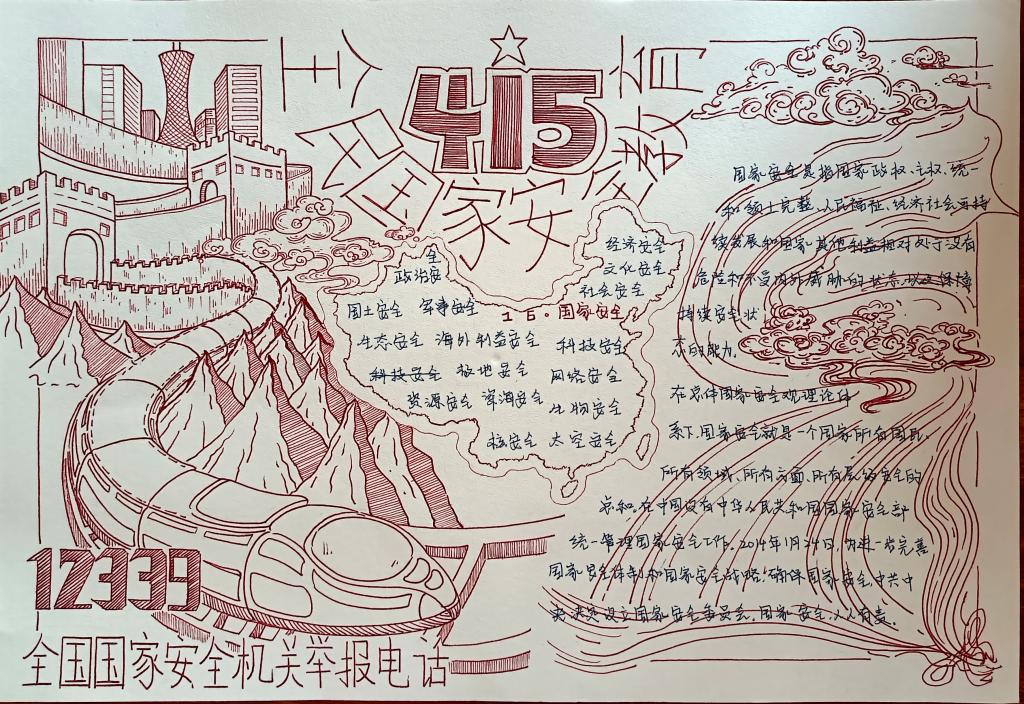 4.15
全民国家安全教育
全
政治安
国土安全 军事安全
经济安全
文化安全
社会安全
16。国家安全
生态安全 海外利益安全 科技安全
科技安全 极地安全 网络安全
资源安全 深海安全 生物安全
核安全 太空安全
国家安全是指国家政权、主权、统一
和领土完整、人民福祉、经济社会可持
续发展和国家其他利益相对处于没有
危险和不受内外威胁的状态,以及保障
持续安全状
态的能力。
在总体国家安全观理论体
系下,国家安全就是一个国家所有国民、
所有领域、所有方面、所有层级安全的
总和,在中国设有中华人民共和国国家安全部
统一管理国家安全工作。2014年1月24日,为进一步完善
国家安全体制和国家安全战略,确保国家安全,中共中
央决定设立国家安全委员会。国家安全,人人有责。
12339
全国国家安全机关举报电话